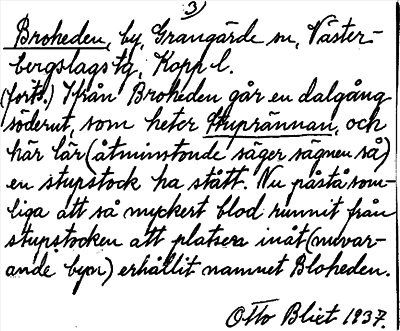 3)
Broheden, by, Grangärde sn, Väster-
bergslags tg, Kopp. l.
(forts.) Ifrån Broheden går en dalgång
söderut, som heter Stuprännan, och
här lär (åtminstonde säger sägnen så)
en stupstock ha stått. Nu påstå som-
liga att så myckert blod runnit från
stupstocken att platsen inåt (nuvar-
ande byn) erhållit namnet Bloheden.
Otto Blixt 1937.